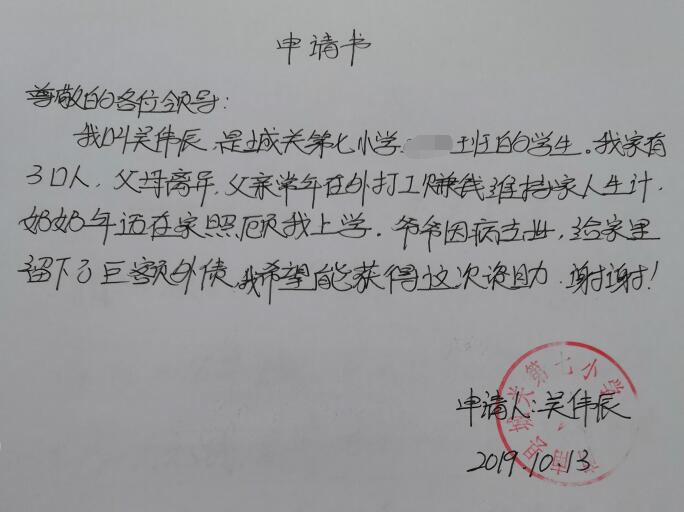 申请书
尊敬的各位领导：
我叫吴伟辰，是城关第七小学 班的学生。我家有
3口人，父母离异，父亲常年在外打工赚钱维持家人生计，
奶奶年迈在家照顾我上学。爷爷因病去世，给家里
留下了巨额外债，我希望能获得这次资助，谢谢！
城关第七小学
申请人：吴伟辰
2019.10.13